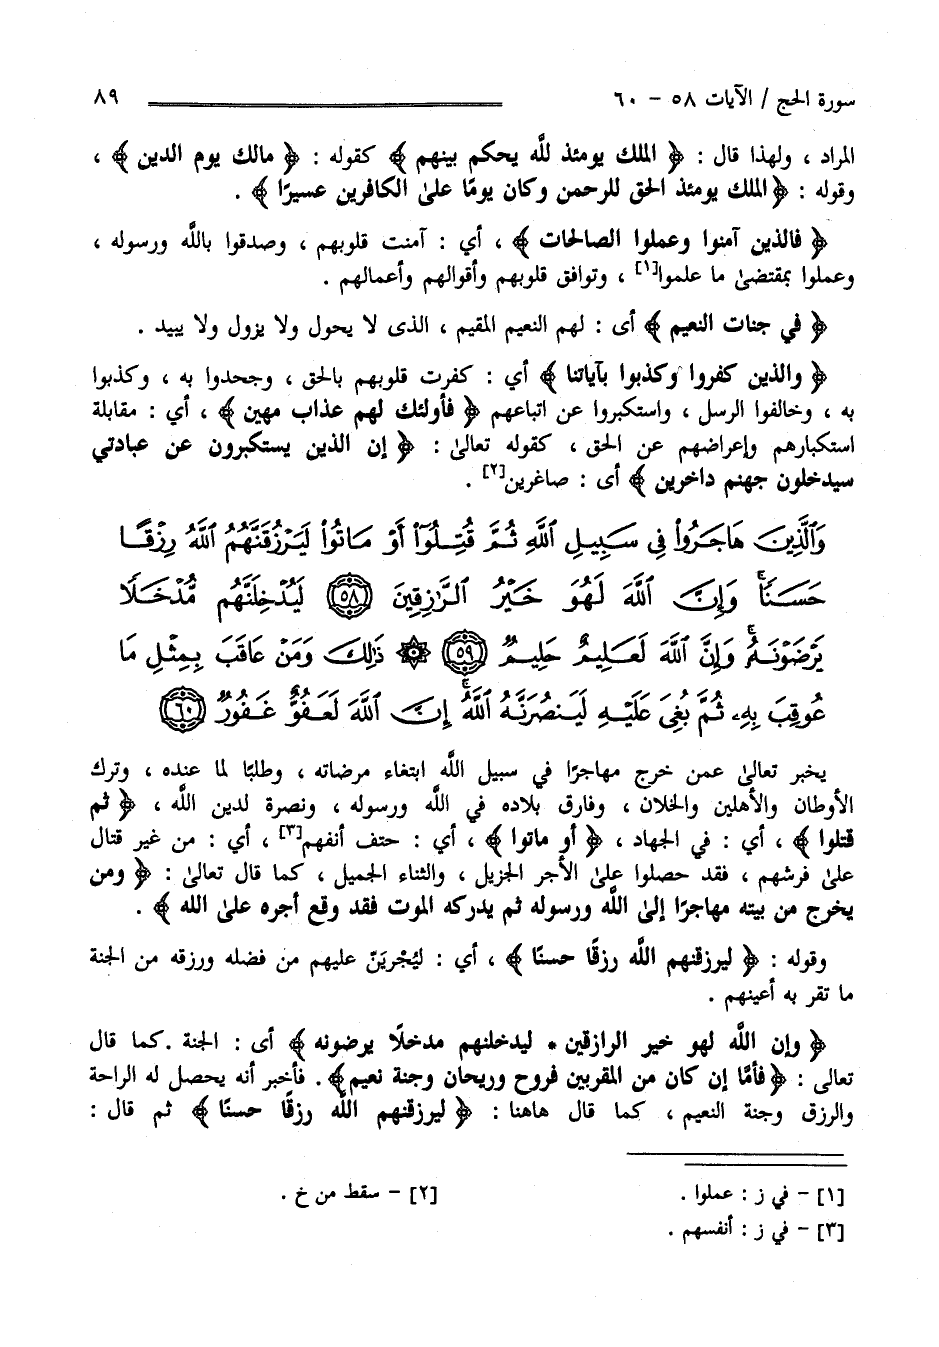 سورة الحج / الآيات ٥٨ - ٦٠ ٨٩
المراد ، ولهذا قال : ﴿ الملك يومئذ للَّه يحكم بينهم ﴾ كقوله : ﴿ مالك يوم الدين ﴾ ،
وقوله : ﴿ الملك يومئذ الحق للرحمن وكان يومًا علىٰ الكافرين عسيرًا ﴾ .
﴿ فالذين آمنوا وعملوا الصالحات ﴾ ، أي : آمنت قلوبهم ، وصدقوا باللَّه ورسوله ،
وعملوا بمقتضىٰ ما علموا[١] ، وتوافق قلوبهم وأقوالهم وأعمالهم .
﴿ في جنات النعيم ﴾ أى : لهم النعيم المقيم ، الذى لا يحول ولا يزول ولا يبيد .
﴿ والذين كفروا وكذبوا بآياتنا ﴾ أي : كفرت قلوبهم بالحق ، وجحدوا به ، وكذبوا
به ، وخالفوا الرسل ، واستكبروا عن اتباعهم ﴿ فأولئك لهم عذاب مهين ﴾ ، أي : مقابلة
استكبارهم وإعراضهم عن الحق ، كقوله تعالىٰ : ﴿ إن الذين يستكبرون عن عبادتي
سيدخلون جهنم داخرين ﴾ أى : صاغرين[٢] .
وَٱلَّذِينَ هَاجَرُوا۟ فِى سَبِيلِ ٱللَّهِ ثُمَّ قُتِلُوٓا۟ أَوْ مَاتُوا۟ لَيَرْزُقَنَّهُمُ ٱللَّهُ رِزْقًا
حَسَنًا ۚ وَإِنَّ ٱللَّهَ لَهُوَ خَيْرُ ٱلرَّٰزِقِينَ ﴿٥٨﴾ لَيُدْخِلَنَّهُم مُّدْخَلًا
يَرْضَوْنَهُۥ ۗ وَإِنَّ ٱللَّهَ لَعَلِيمٌ حَلِيمٌ ﴿٥٩﴾ ۞ ذَٰلِكَ وَمَنْ عَاقَبَ بِمِثْلِ مَا
عُوقِبَ بِهِۦ ثُمَّ بُغِىَ عَلَيْهِ لَيَنصُرَنَّهُ ٱللَّهُ ۗ إِنَّ ٱللَّهَ لَعَفُوٌّ غَفُورٌ ﴿٦٠﴾
يخبر تعالىٰ عمن خرج مهاجرًا في سبيل اللَّه ابتغاء مرضاته ، وطلبًا لما عنده ، وترك
الأوطان والأهلين والخلان ، وفارق بلاده في اللَّه ورسوله ، ونصرة لدين اللَّه ، ﴿ ثم
قتلوا ﴾ ، أي : في الجهاد ، ﴿ أو ماتوا ﴾ ، أي : حتف أنفهم[٣] ، أي : من غير قتال
علىٰ فرشهم ، فقد حصلوا علىٰ الأجر الجزيل ، والثناء الجميل ، كما قال تعالىٰ : ﴿ ومن
يخرج من بيته مهاجرًا إلىٰ اللَّه ورسوله ثم يدركه الموت فقد وقع أجره علىٰ الله ﴾ .
وقوله : ﴿ ليرزقنهم اللَّه رزقًا حسنًا ﴾ ، أي : ليُجْريَنّ عليهم من فضله ورزقه من الجنة
ما تقر به أعينهم .
﴿ وإن اللَّه لهو خير الرازقين * ليدخلنهم مدخلًا يرضونه ﴾ أى : الجنة .كما قال
تعالى : ﴿ فأمَّا إن كان من المقربين فروح وريحان وجنة نعيم ﴾ . فأخبر أنه يحصل له الراحة
والرزق وجنة النعيم ، كما قال هاهنا : ﴿ ليرزقنهم اللَّه رزقًا حسنًا ﴾ ثم قال :
[١] - في ز : عملوا . [٢] - سقط من خ .
[٣] - في ز : أنفسهم .